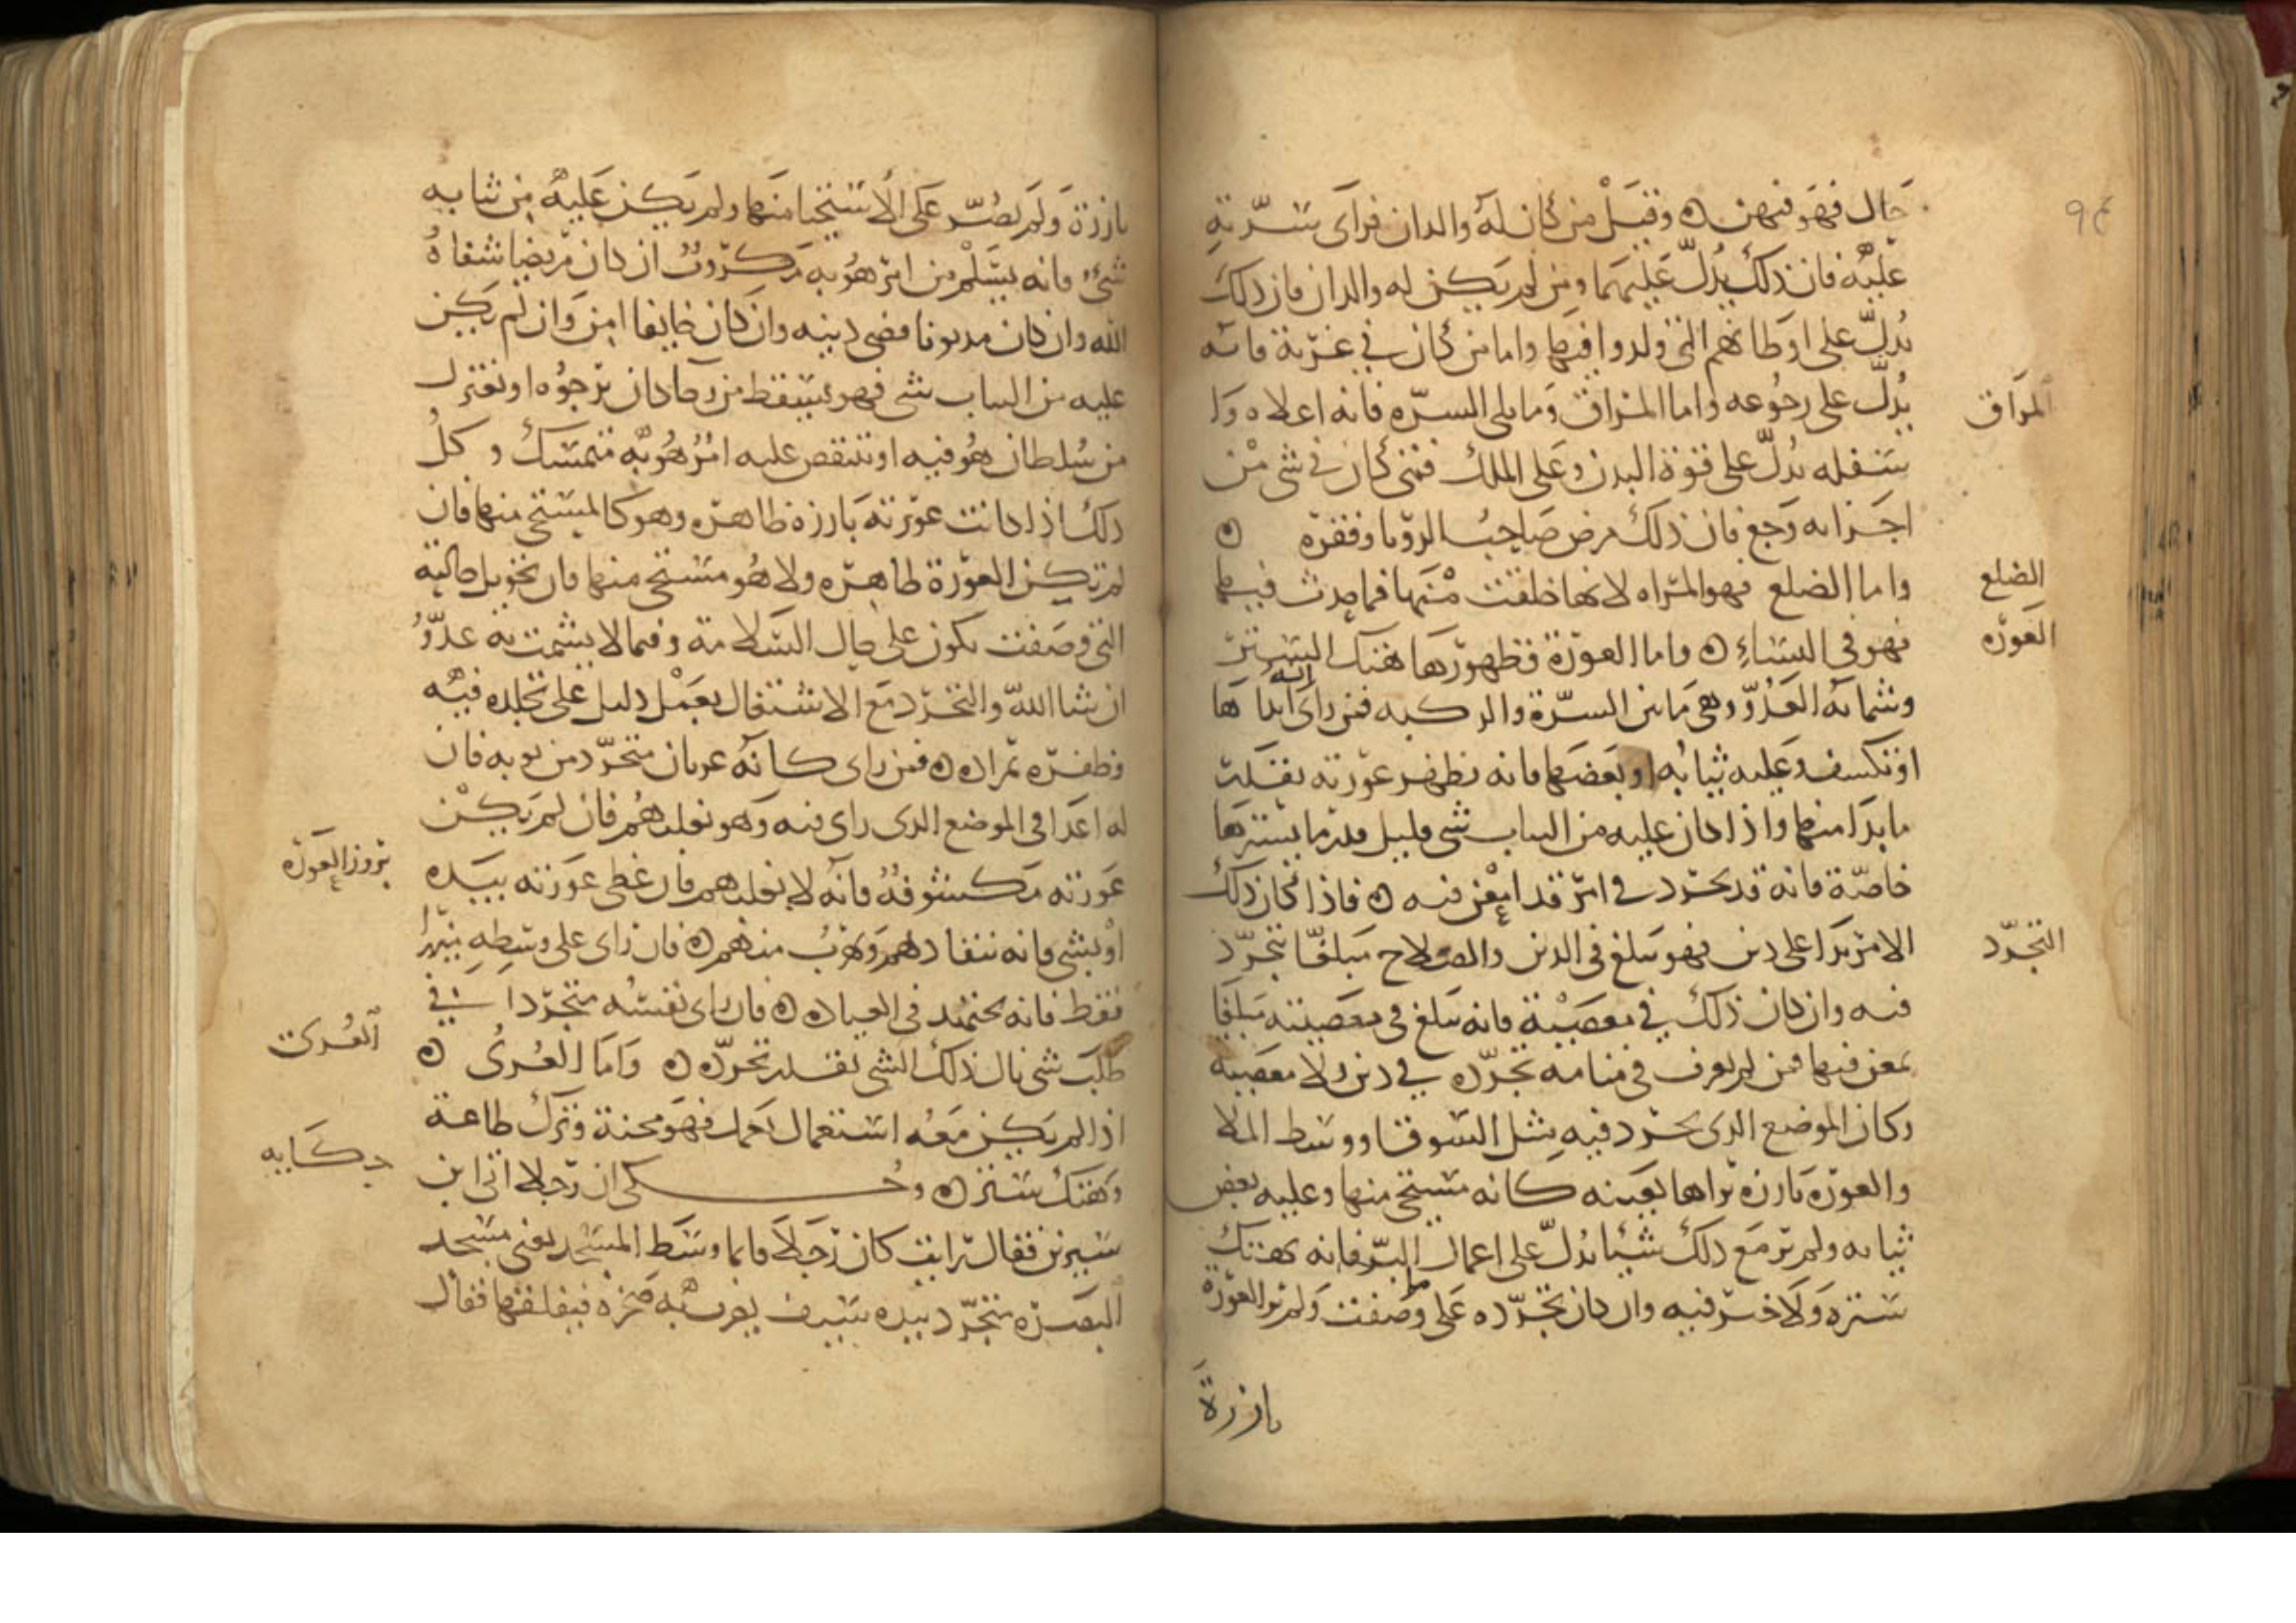 حال فهو فيهن ه وقيل من كان له والدان فرأى سرته
عليه فان ذلك يدل عليهما ومن لم يكن له والدان فان ذلك
يدل على اوطانهم التي ولدوا فيها واما من كان في غربة فانه
يدل على رجوعه واما المراق وما يلى السره فانه اعلاه وا
المراق
سفله يدل على قوة البدن وعلى الملك فمتى كان في شى من
اجزايه وجع فان ذلك مرض صاحب الرويا وفقره ه
واما الضلع فهو المراه لانها خلقت منها فما حدث فيها
الضلع
فهو فى النساء ه واما العورة فظهورها هتك الستر
العوره
وشماتة العدو وهى ما بين السرة والركبه فمن راى انه ابداها
او تكشف وعليه ثيابه او بعضها فانه تظهر عورته بقدر
ما بدا منها واذا كان عليه من الثياب شى قليل قدر ما يسترها
خاصة فانه قد تجرد في امر قد امعن فيه ه فاذا كان ذلك
الامر يدا على دين فهو يبلغ فى الدين والصلاح مبلغا تجرد
التجرد
فيه وان كان ذلك في معصية فانه يبلغ في معصيته مبلغا
يمعن فيها فمن لم يعرف في منامه تجرده في دين ولا معصية
وكان الموضع الذى تجرد فيه مثل السوق او وسط الملا
والعوره بارزه يراها بعينه كانه مستحى منها وعليه بعض
ثيابه ولم ير مع ذلك شيئا يدل على اعمال البر فانه يهتك
ستره ولا خير فيه وان كان تجرده على ما وصفت ولم ير العورة
بارزة
بارزة ولم يصر على الاستحيا منها ولم يكن عليه من ثيابه
شئ فانه يسلم من امر هو به مكروب ان كان مريضا شفاه
الله وان كان مديونا قضى دينه وان كان خايفا امن وان لم يكن
عليه من الثياب شى فهو يسقط من رجا كان يرجوه او يعتزل
من سلطان هو فيه او ينتقص عليه امر هو به متمسك وكل
ذلك اذا كانت عورته بارزه ظاهره وهو كالمستحى منها فان
لم تكن العورة ظاهره ولا هو مستحى منها فان تحويل حالته
التى وصفت يكون على حال السلامة وفيما لا يشمت به عدو
ان شا الله والتجرد مع الاشتغال بعمل دليل على تجلده فيه
وظفره بمراده ه فمن راى كانه عريان متجرد من ثوبه فان
له اعدا في الموضع الذى راى فيه وهو يغلبهم فان لم يكن
عورته مكشوفه فانه لا يغلبهم فان غطى عورته بيده
بروز العوره
او بشى فانه ينقاد لهم ويهرب منهم ه فان راى على وسطه ميزرا
فقط فانه يجتهد في العباده ه فان راى نفسه متجردا في
طلب شى نال ذلك الشى بقدر تجرده ه واما العرى ه
العرى
اذا لم يكن معه استعمال عمل فهو محنة وترك طاعة
وهتك ستر ه وحكى ان رجلا اتى ابن
حكايه
سيرين فقال رايت كان رجلا قايما وسط المسجد يعنى مسجد
البصره متجرد بيده سيف يضرب به صخره فيفلقها فقال